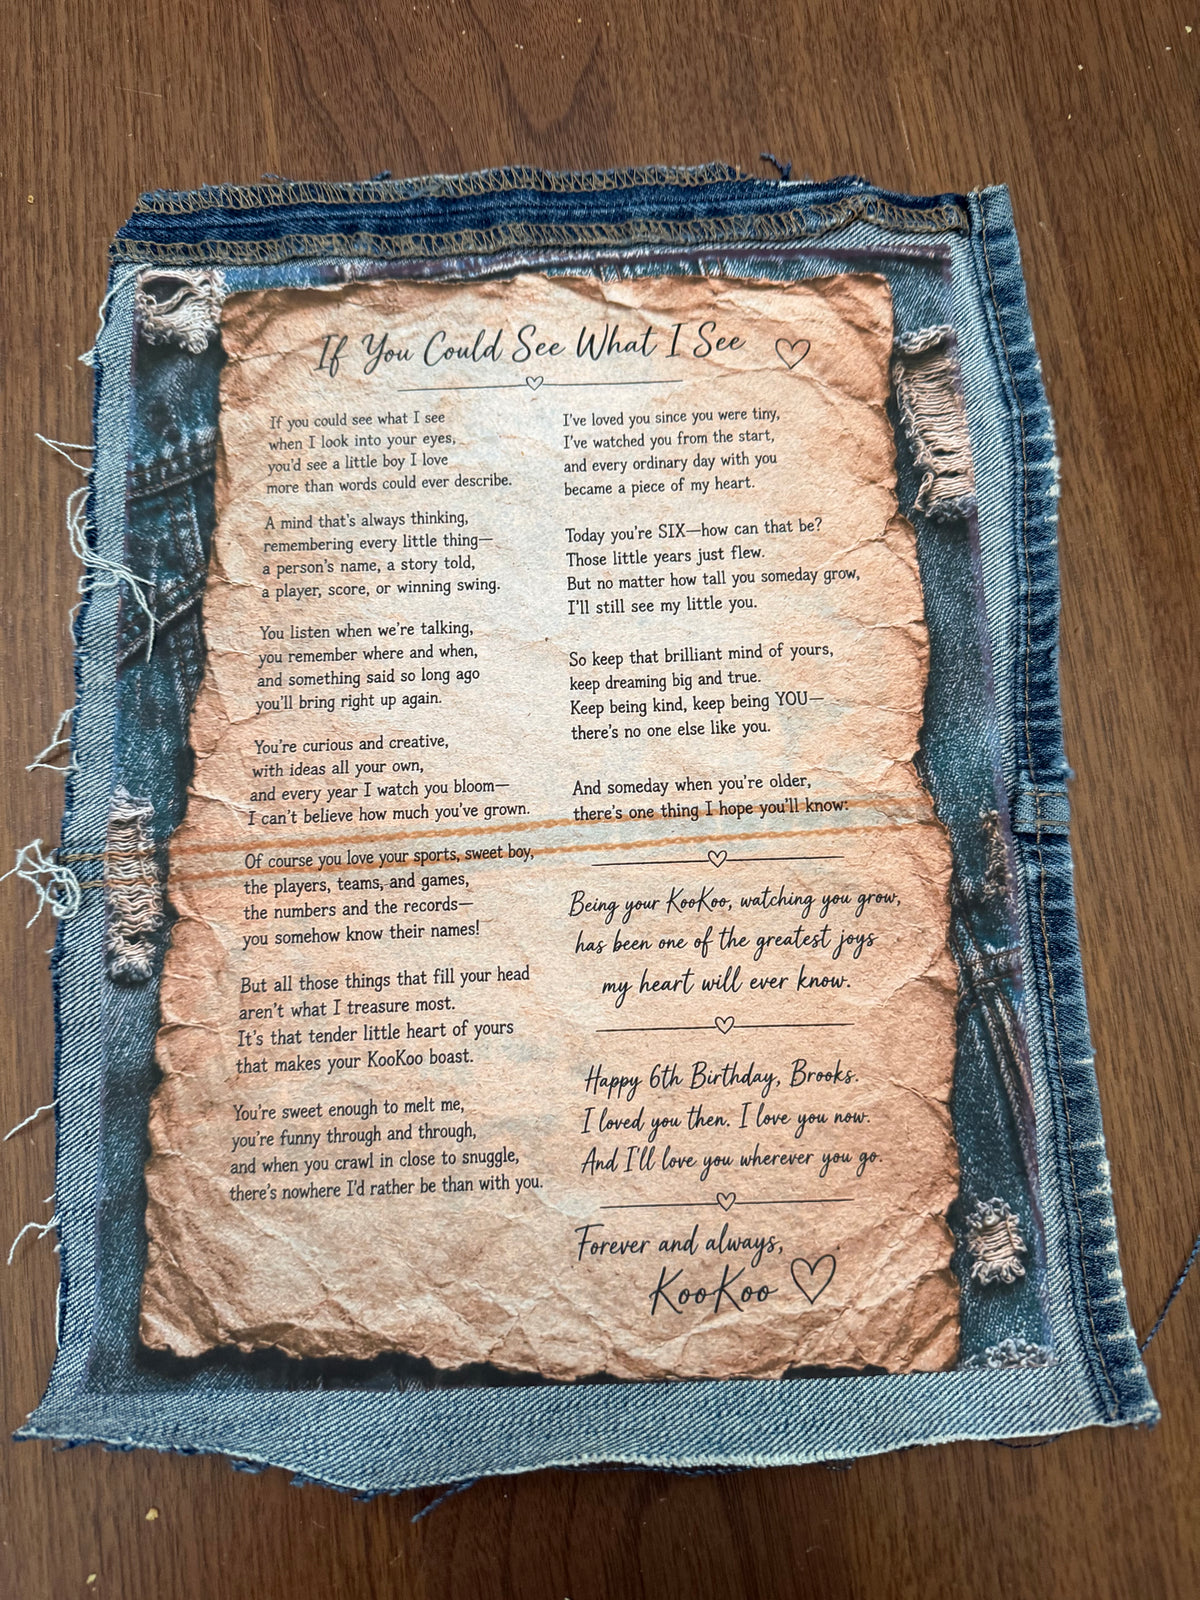 If You Could See What I See
If you could see what I see
when I look into your eyes,
you'd see a little boy I love
more than words could ever describe.
A mind that's always thinking,
remembering every little thing—
a person's name, a story told,
a player, score, or winning swing.
You listen when we're talking,
you remember where and when,
and something said so long ago
you'll bring right up again.
You're curious and creative,
with ideas all your own,
and every year I watch you bloom—
I can't believe how much you've grown.
Of course you love your sports, sweet boy,
the players, teams, and games,
the numbers and the records—
you somehow know their names!
But all those things that fill your head
aren't what I treasure most.
It's that tender little heart of yours
that makes your KooKoo boast.
You're sweet enough to melt me,
you're funny through and through,
and when you crawl in close to snuggle,
there's nowhere I'd rather be than with you.
I've loved you since you were tiny,
I've watched you from the start,
and every ordinary day with you
became a piece of my heart.
Today you're SIX—how can that be?
Those little years just flew.
But no matter how tall you someday grow,
I'll still see my little you.
So keep that brilliant mind of yours,
keep dreaming big and true.
Keep being kind, keep being YOU—
there's no one else like you.
And someday when you're older,
there's one thing I hope you'll know:
Being your KooKoo, watching you grow,
has been one of the greatest joys
my heart will ever know.
Happy 6th Birthday, Brooks.
I loved you then. I love you now.
And I'll love you wherever you go.
Forever and always,
KooKoo